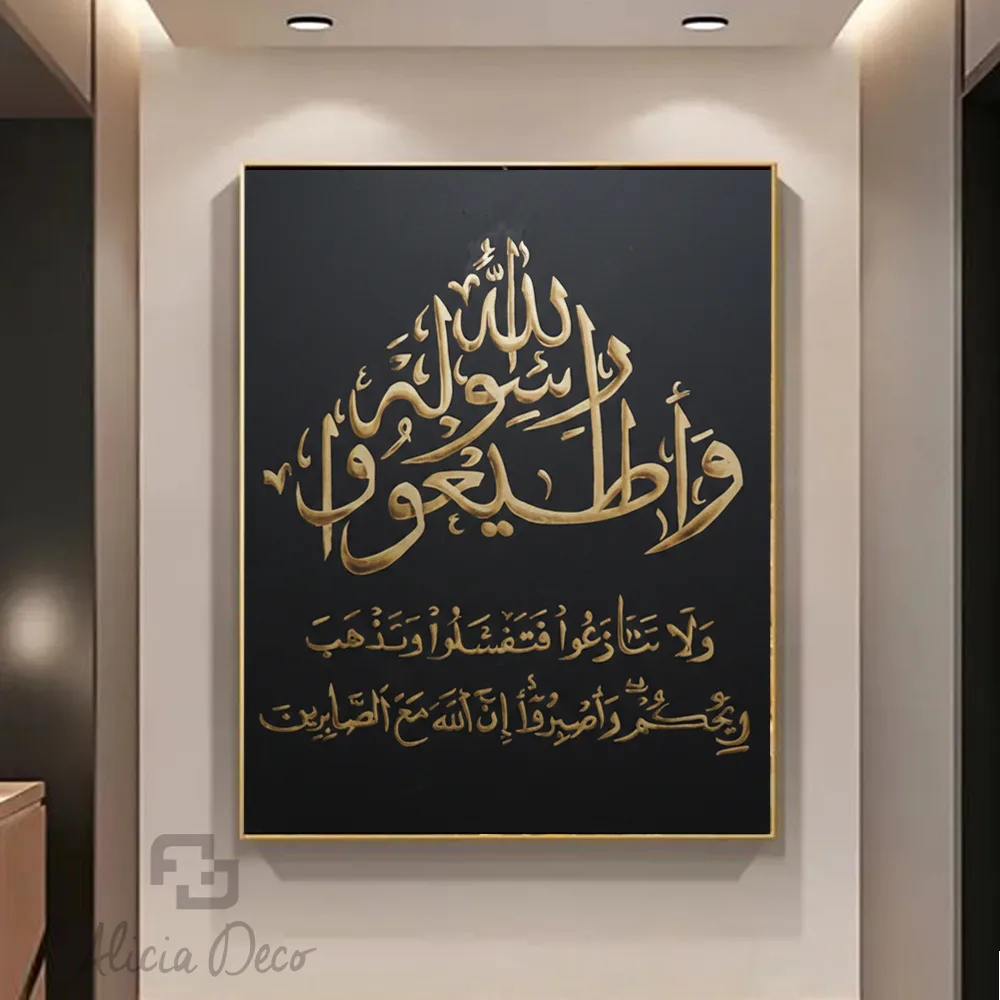 وَأَطِيعُوا اللَّهَ وَرَسُولَهُ
وَلَا تَنَازَعُوا فَتَفْشَلُوا وَتَذْهَبَ
رِيحُكُمْ وَاصْبِرُوا إِنَّ اللَّهَ مَعَ الصَّابِرِينَ
Alicia Deco